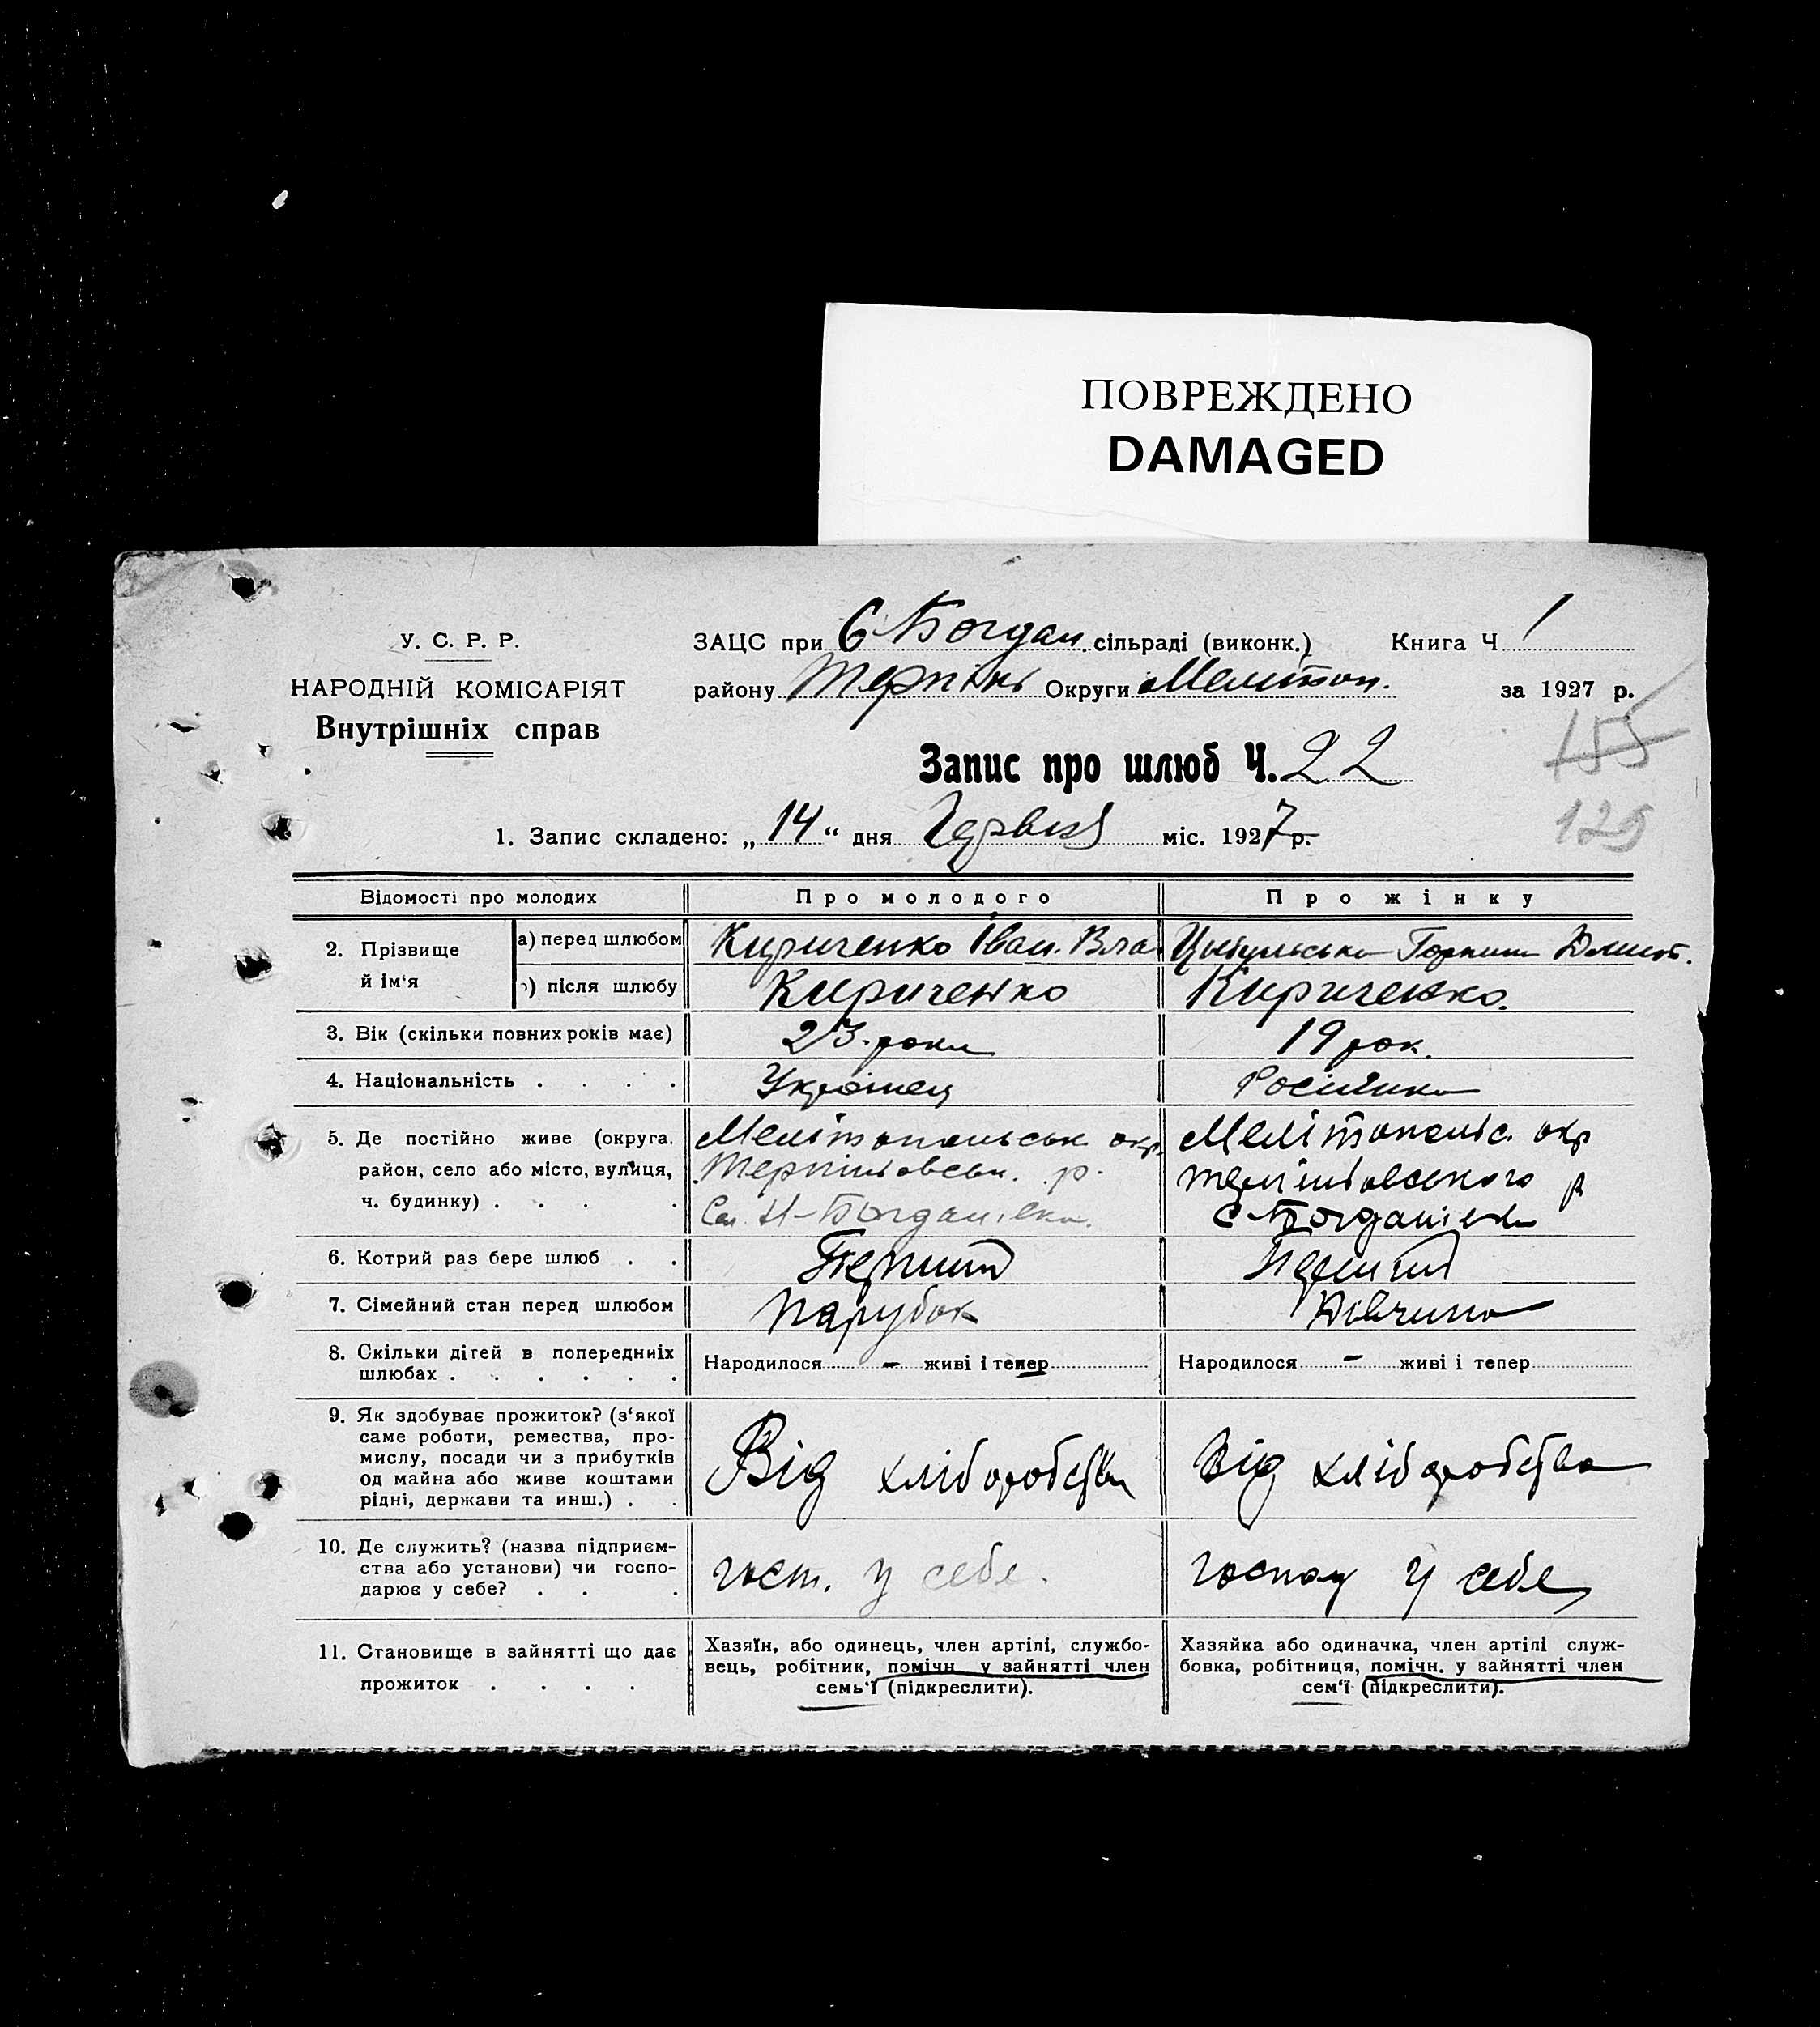 ПОВРЕЖДЕНО
DAMAGED
У. С. Р. Р.
НАРОДНІЙ КОМІСАРІЯТ
Внутрішніх справ
ЗАЦС при С Богдан. сільраді (виконк.) Книга Ч 1
району Терпінь Округи Мелітоп. за 1927 р.
155
Запис про шлюб Ч. 22
129
1. Запис складено: „14“ дня Червня міс. 1927 р.
Відомості про молодих Про молодого Про жінку
2. Прізвище й ім‘я
а) перед шлюбом Кириченко Іван. Вла Цыбульська Горпина
) після шлюбу Кириченко Кириченко.
3. Вік (скільки повних років має) 23 роки 19 рок.
4. Національність . . . . Українец Росіянка
5. Де постійно живе (округа. Мелітопольськ окр. Мелітопольс. окр
район, село або місто, вулиця, Терпіньовськ. р. Терпіньовського р
ч. будинку) . . . . Сел. Н-Богданівка. С Богданівка
6. Котрий раз бере шлюб . . Перший Перший
7. Сімейний стан перед шлюбом Парубок Дівчина
8. Скільки дітей в попередниіх Народилося — живі і тепер Народилося — живі і тепер
шлюбах . . . . . .
9. Як здобуває прожиток? (з‘якої
саме роботи, ремества, про-
мислу, посади чи з прибутків Від хліборобства Від хліборобства
од майна або живе коштами
рідні, держави та инш.) . .
10. Де служить? (назва підприєм-
ства або установи) чи госпо- госп. у себе. господ у себе
дарює у себе? . . .
11. Становище в зайнятті що дає
прожиток . . . .
Хазяїн, або одинець, член артілі, службо-
вець, робітник, помічн. у зайнятті член
семь‘ї (підкреслити).
Хазяйка або одиначка, член артілі служ-
бовка, робітниця, помічн. у зайнятті член
сем‘ї (підкреслити).